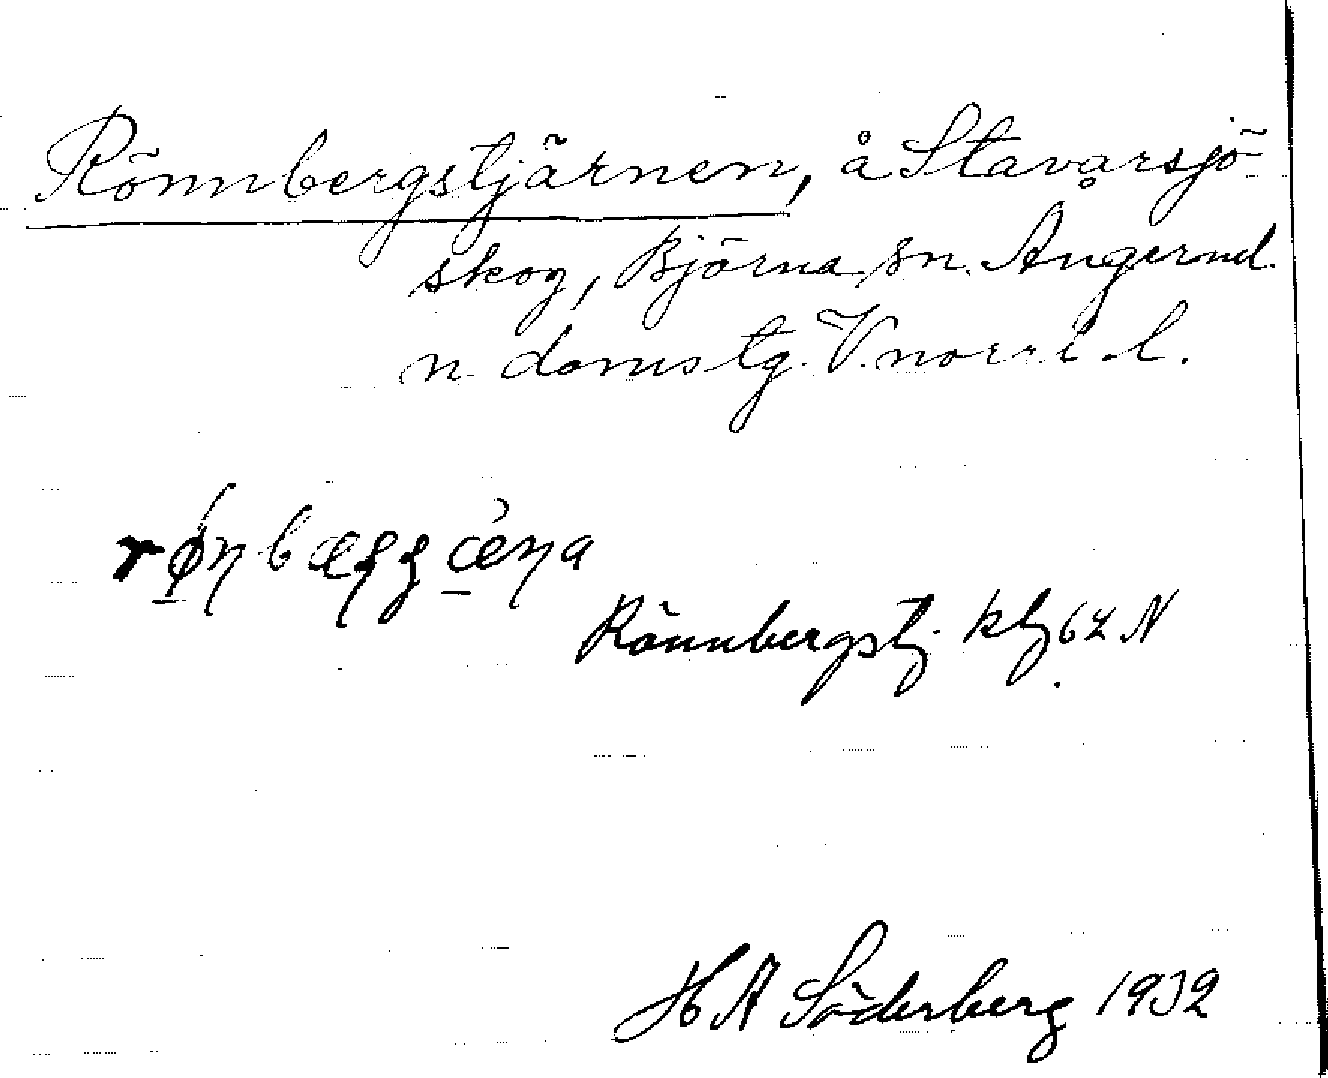 Rönnbergstjärnen, å Stavarsjö-
skog, Björna sn. Ångermd.
n domstg. V.norrl. l.
Rönnbergstj. ktj 62 N
H A Söderberg 1932